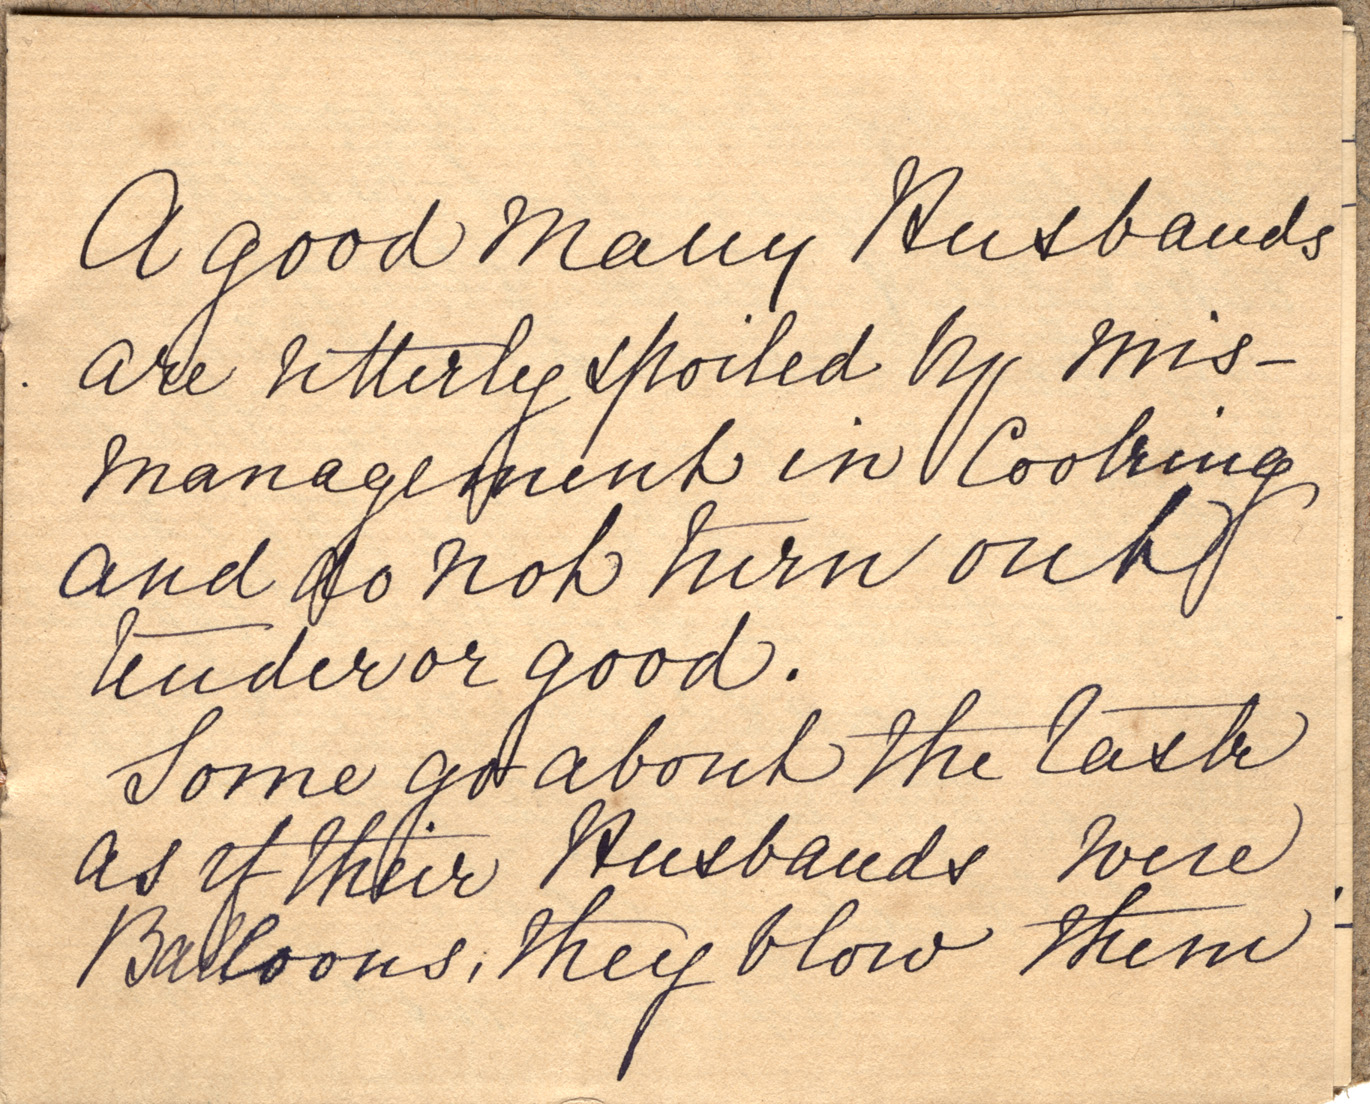 A good Many Husbands
are utterly spoiled by mis-
management in Cooking
and do not turn out
tender or good.
Some go about the task
as if their Husbands were
Balloons, they blow them